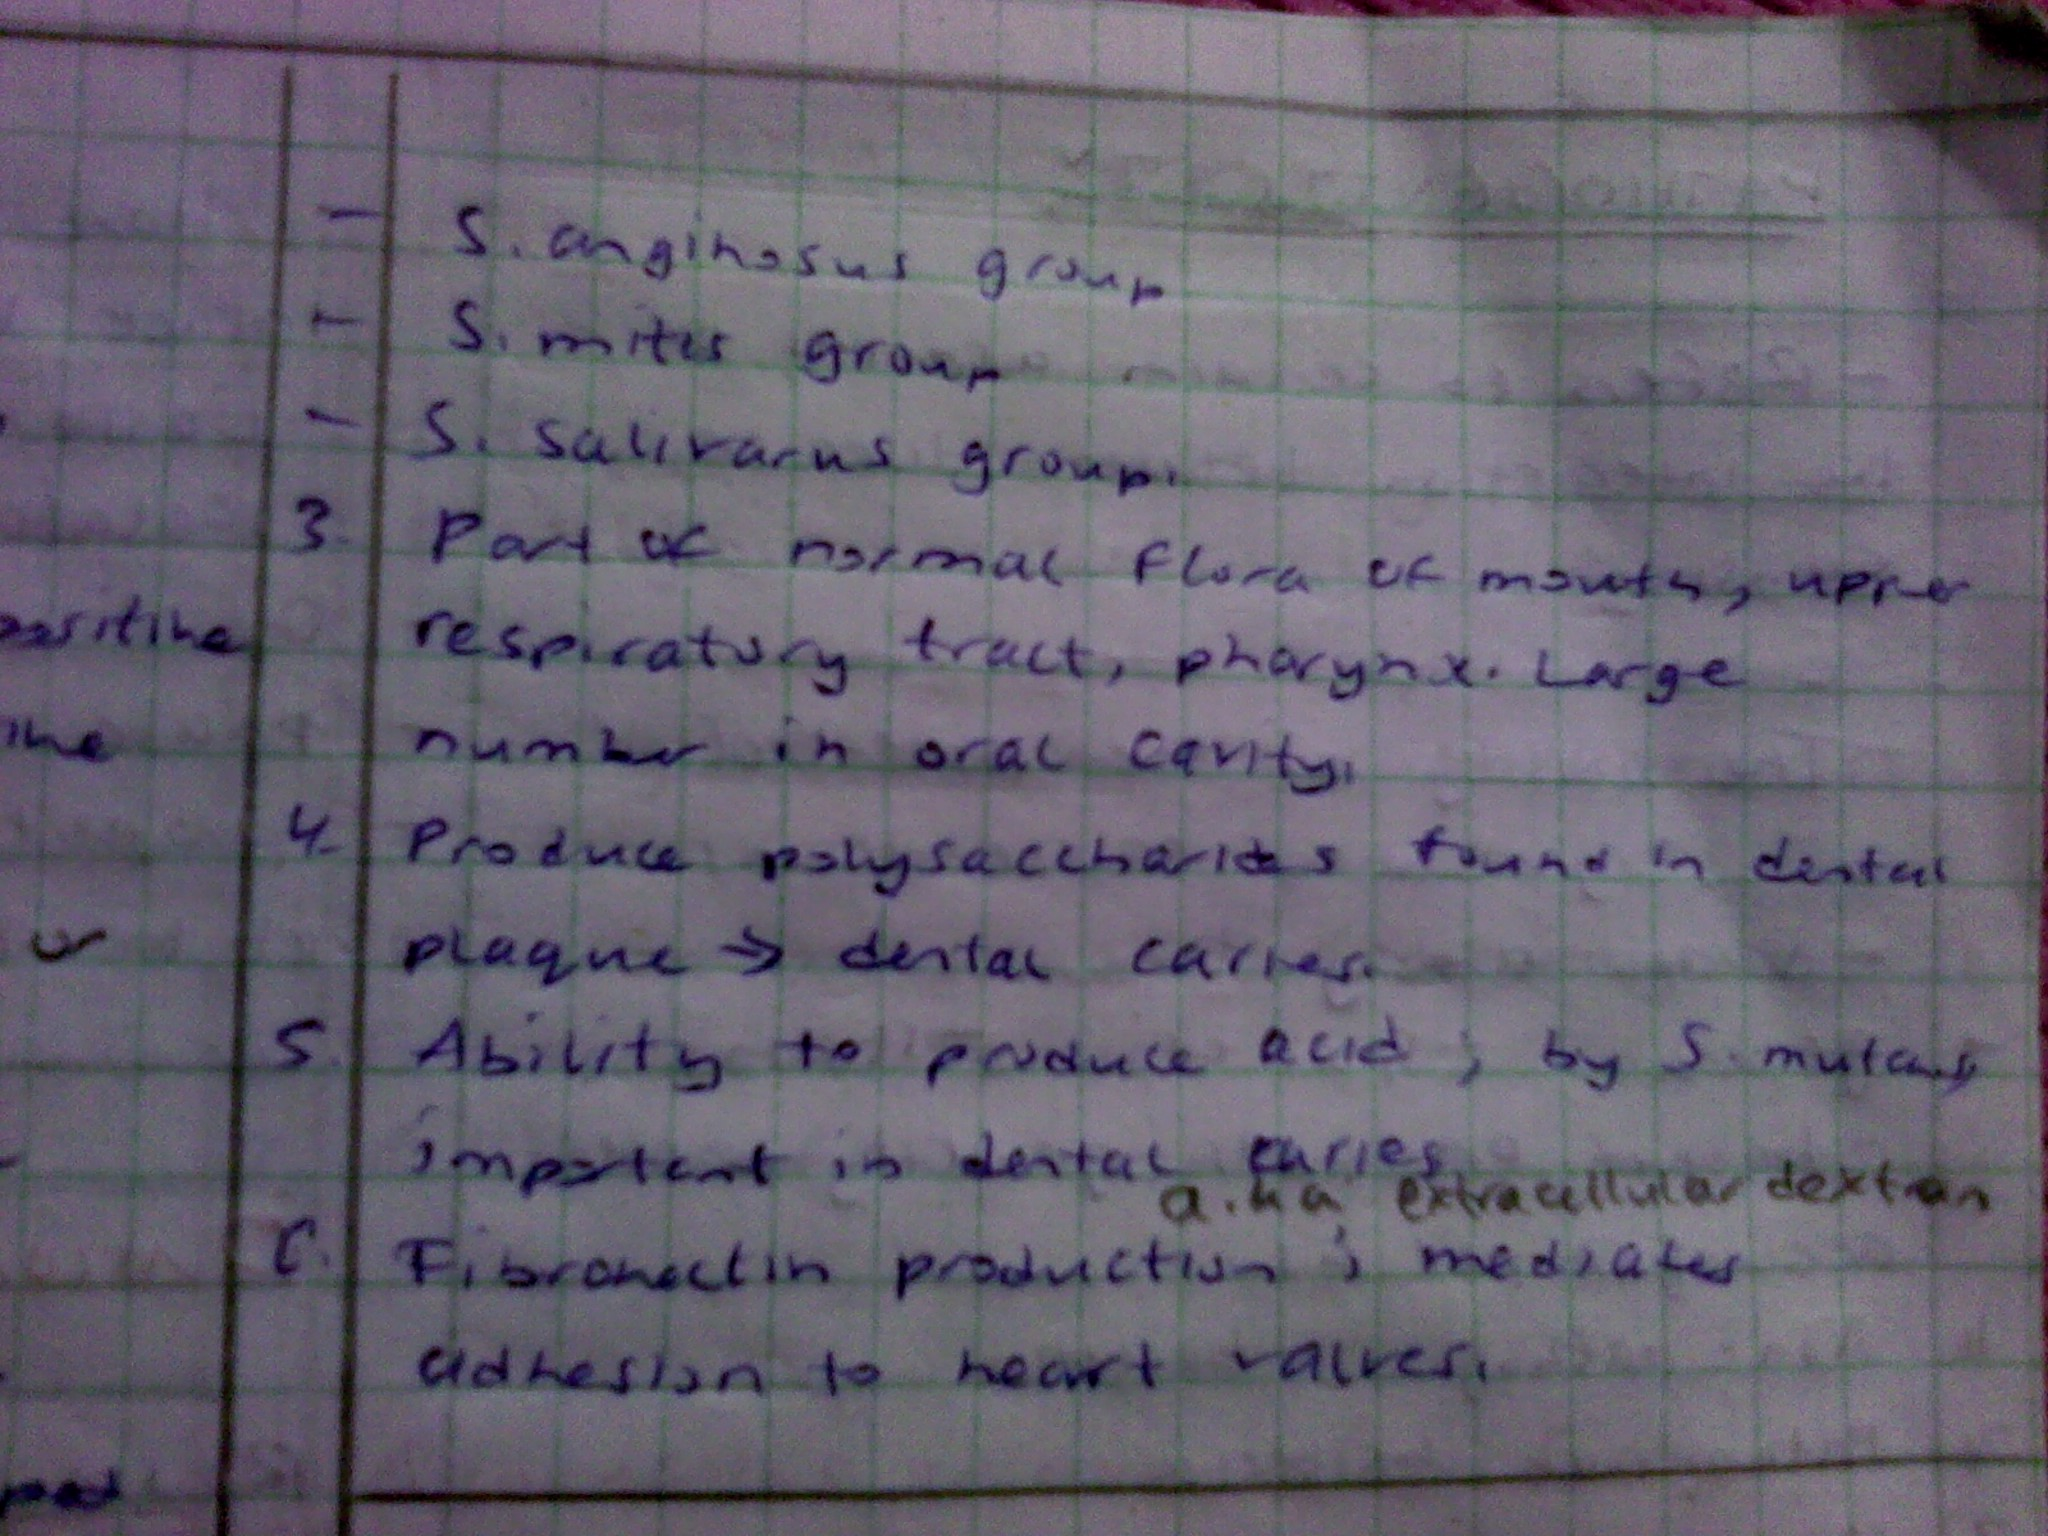 - S. anginosus group
- S. mites group
- S. salivarus group.
3. Part of normal flora of mouth, upper
respiratory tract, pharynx. Large
number in oral cavity.
4. Produce polysaccharides found in dental
plaque → dental caries.
5. Ability to produce acid; by S. mutans,
important in dental caries
a.k.a extracellular dextran
6. Fibronectin production; mediates
adhesion to heart valves.